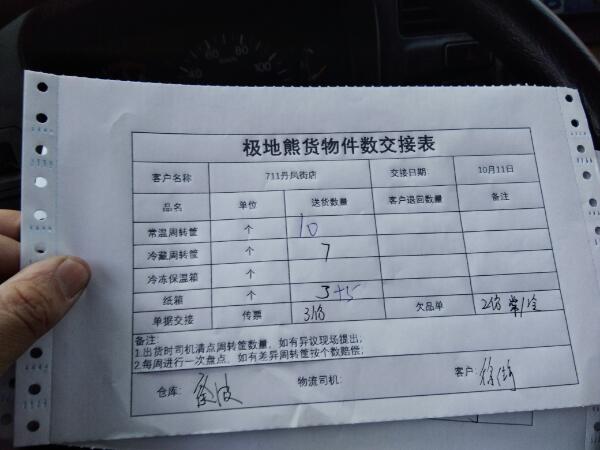 极地熊货物件数交接表
客户名称 711丹凤街店 交接日期 10月11日
品名 单位 送货数量 客户退回数量 备注
常温周转筐 个 10
冷藏周转筐 个 7
冷冻保温箱 个
纸箱 个 3+5
单据交接 传票 3份 欠品单 2份 常/冷
备注:
1.出货时司机清点周转筐数量,如有异议现场提出;
2.每周进行一次盘点,如有差异周转筐按个数赔偿;
仓库: 物流司机: 客户:
80
100
40